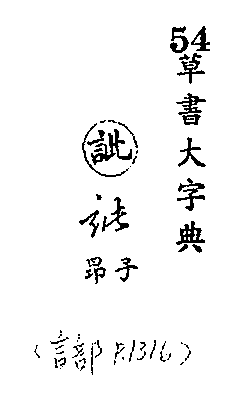 54
草書大字典
訿
訿
子昂
(言部 P.1316)